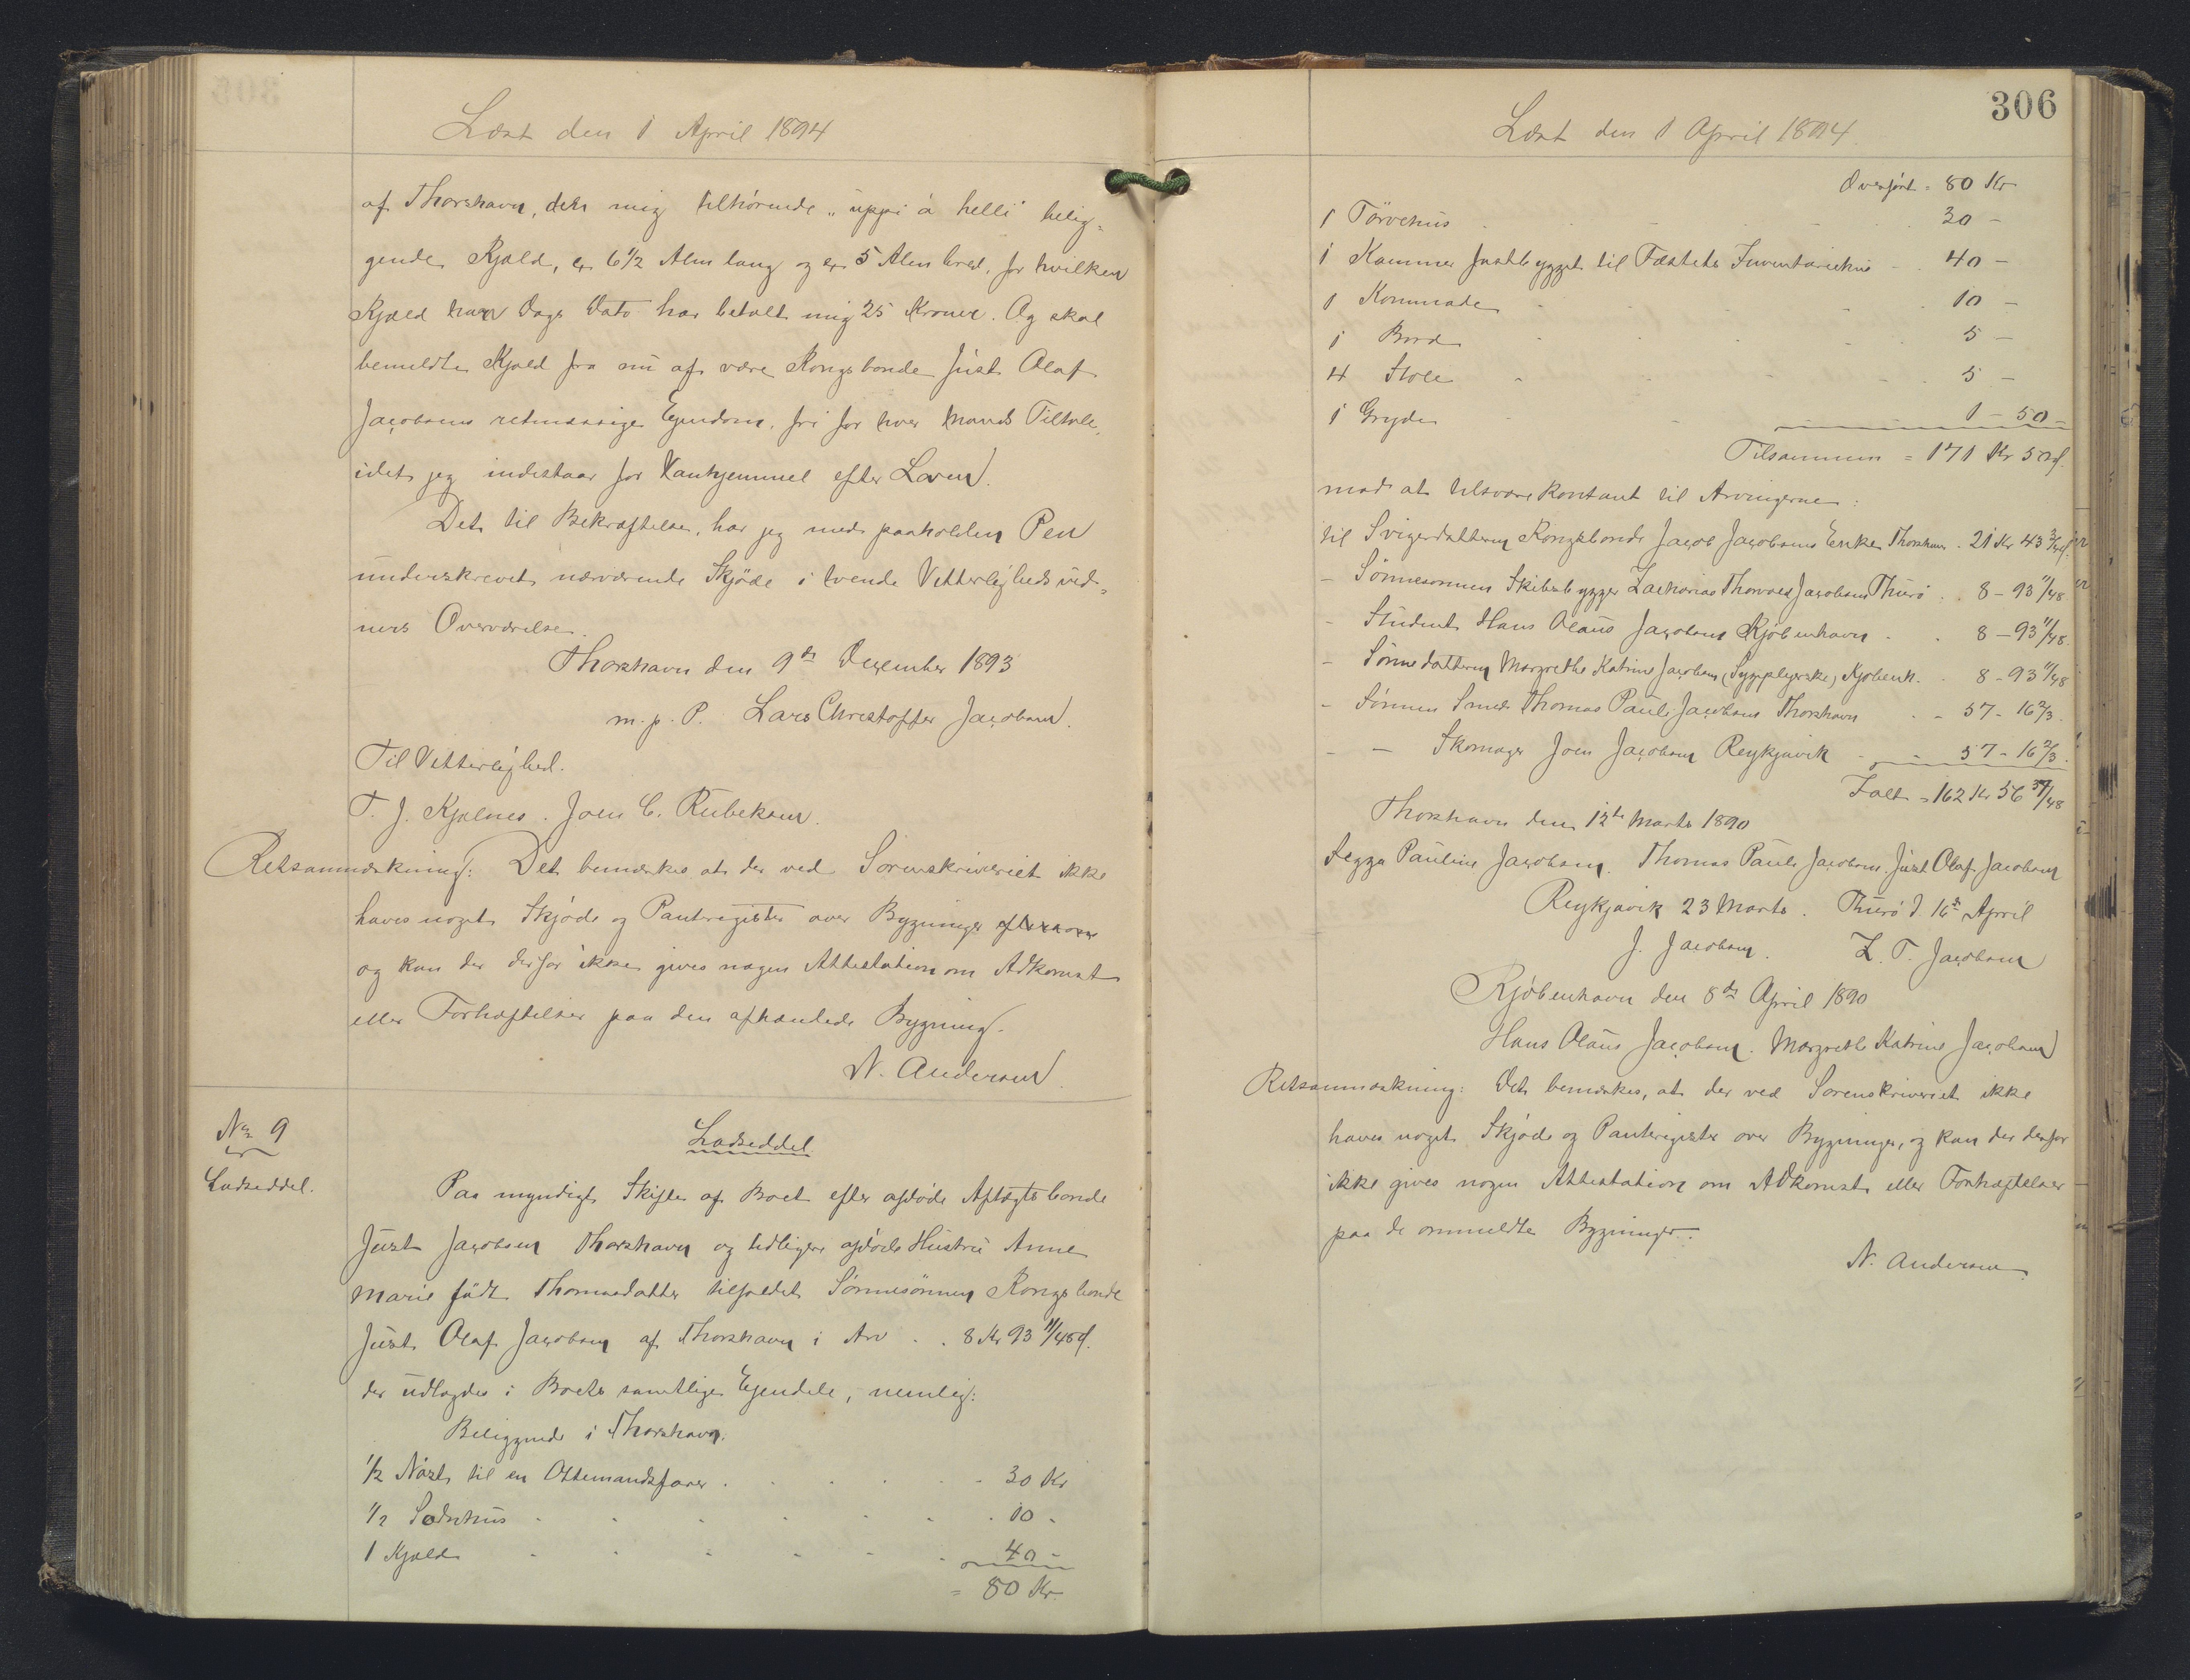 Læst den 1 April 1894
af Thorshavn, den mig tilhørende "uppi á helli" belig-
gende Kjald, er 6 1/2 Alen lang og er 5 Alen bred, for hvilken
Kjald han Dags Dato har betalt mig 25 Kroner. Og skal
bemeldte Kjald fra nu af være Kongsbonde Just Olaf
Jacobsens retmæssige Ejendom, fri for hver Mands Tiltale,
idet jeg indestaar for Vanhjemmel efter Loven.
Det til Bekræftelse, har jeg med paaholden Pen
underskrevet nærværende Skjøde i tvende Vitterlighedsvid-
ners Overværelse.
Thorshavn den 9de December 1893
m. p. P. Lars Christoffer Jacobsen.
Til Vitterlighed.
T. J. Kjølnes. Joen C. Rubeksen.
Retsanmærkning: Det bemærkes at der ved Sorenskriveriet ikke
haves noget Skjøde og Panteregister over Bygninger
og kan der derfor ikke gives nogen Attestation om Adkomst
eller Forhæftelser paa den afhændede Bygning.
N. Andersen.
No 9
Lodseddel.
Lodseddel.
Paa myndigt Skifte af Boet efter afdøde Aftægtsbonde
Just Jacobsen Thorshavn og tidligere afdøde Hustru Anne
Marie født Thomasdatter tilfaldt Sønnesønnen Kongsbonde
Just Olaf Jacobsen af Thorshavn i Arv . . 8 Kr 93 11/48 Ø.
der udlagdes i Boets samtlige Ejendele, nemlig:
Beliggende i Thorshavn.
1/2 Nøst til en Ottemandsfarer . . . . 30 Kr
1/2 Sodnhus - - - - - - 10 -
1 Kjald - - - - - - 40 -
= 80 Kr.
306
Læst den 1 April 1894
Overført = 80 Kr
1 Törvehus 30 -
1 Kammer fastbygget til Fæstets Inventariehus - 40 -
1 Kommode 10 -
1 Bord 5 -
4 Stole 5 -
1 Gryde 1 - 50 -
Tilsammen = 171 Kr 50 Ø.
mod at tilsvare kontant til Arvingerne:
til Svigerdatteren Kongsbonde Jacob Jacobsens Enke Thorshavn . 21 Kr 43
- Sønnesønnen Skibsbygger Zacharias Thorvald Jacobsen Thurø . . 8 - 93 11/48
- Student Hans Olaus Jacobsen Kjøbenhavn - . 8 - 93 11/48.
- Sønnedatteren Margrethe Katrine Jacobsen (Sygeplejerske) Kjøbenh. . 8 - 93 11/48
- Sønnen Smed Thomas Pauli Jacobsen Thorshavn . - 57 - 16 2/3.
- - Skomager Joen Jacobsen Reykjavik - - 57 - 16 2/3.
Ialt = 162 Kr 56 37/48
Thorshavn den 12te Marts 1890
Pauline Jacobsen. Thomas Pauli Jacobsen. Just Olaf Jacobsen
Reykjavik 23 Marts. Thurø d. 16de April
J. Jacobsen. Z. T. Jacobsen
Kjöbenhavn den 8de April 1890
Hans Olaus Jacobsen. Margrethe Katrine Jacobsen
Retsanmærkning: Det bemærkes, at der ved Sorenskriveriet ikke
haves noget Skjøde og Panteregister over Bygninger, og kan der derfor
ikke gives nogen Attestation om Adkomst eller Forhæftelser
paa de ommeldte Bygninger.
N. Andersen.